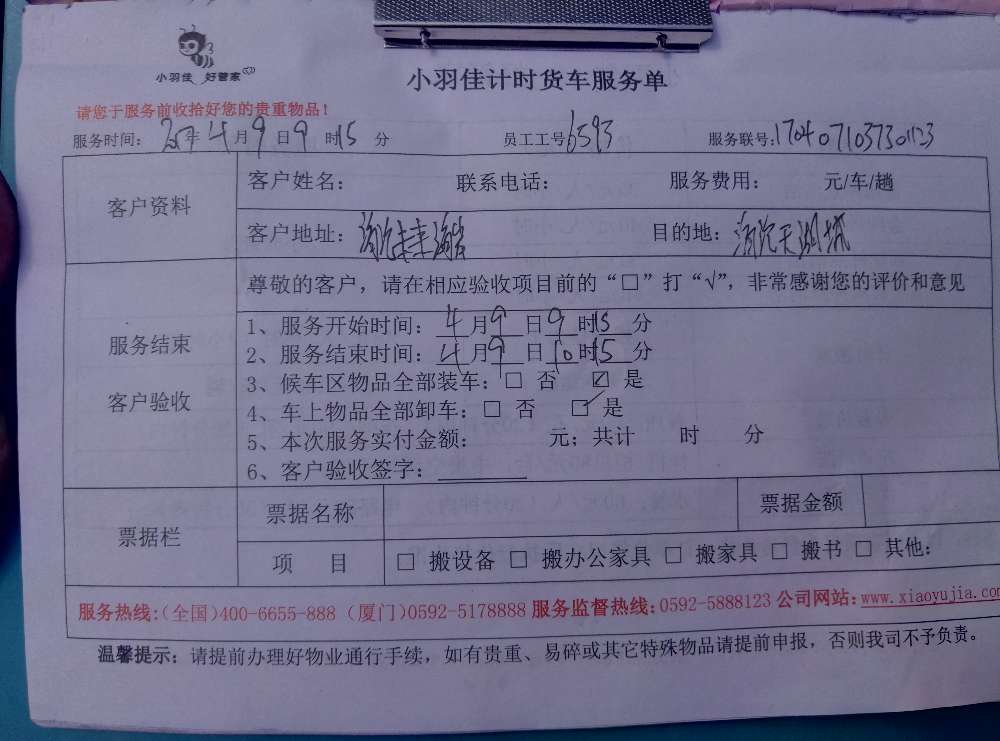 小羽佳 好管家
小羽佳计时货车服务单
请您于服务前收拾好您的贵重物品!
服务时间: 年4月9日9时15分 员工工号6593 服务联号:170407103730123
客户资料
客户姓名: 联系电话: 服务费用: 元/车/趟
客户地址: 未来海岸 目的地: 天湖城
尊敬的客户,请在相应验收项目前的“□”打“√”,非常感谢您的评价和意见
服务结束
客户验收
1、服务开始时间:4月9日9时15分
2、服务结束时间:4月9日10时15分
3、候车区物品全部装车:□ 否 ☑ 是
4、车上物品全部卸车:□ 否 ☑ 是
5、本次服务实付金额: 元;共计 时 分
6、客户验收签字:
票据栏
票据名称 票据金额
项 目 □ 搬设备 □ 搬办公家具 □ 搬家具 □ 搬书 □ 其他:
服务热线:(全国)400-6655-888 (厦门)0592-5178888 服务监督热线:0592-5888123 公司网站:www.xiaoyujia.com
温馨提示:请提前办理好物业通行手续,如有贵重、易碎或其它特殊物品请提前申报,否则我司不予负责。